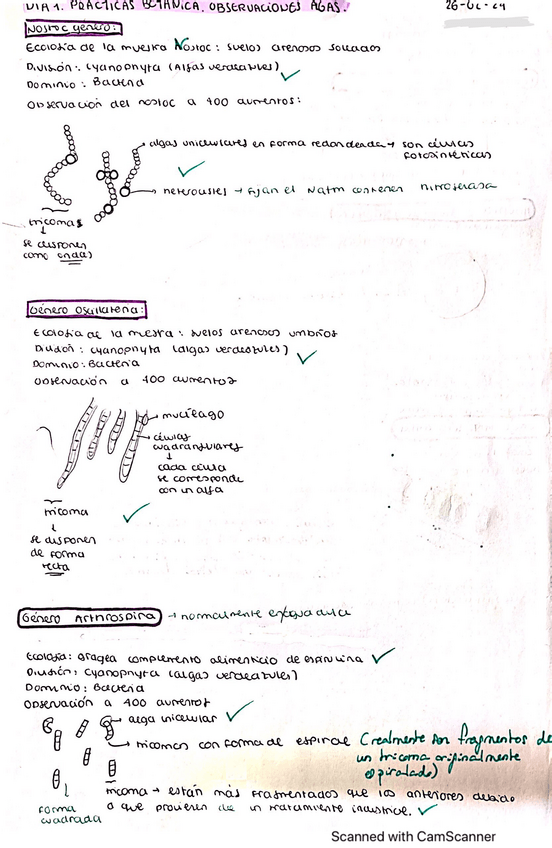 DIA 1. PRÁCTICAS BOTÁNICA. OBSERVACIONES AGAS.
26-02-24
Nostoc género:
Ecología de la muestra Nostoc: suelos arenosos soleados
División: Cyanophyta (Algas verdeazules)
Dominio: Bacteria
Observación del nostoc a 400 aumentos:
algas unicelulares en forma redondeada → son células
fotosintéticas
heterocistes → fijan el N atm contienen nitrogenasa
tricomas
se disponen
como ondas
Género Oscillatoria:
Ecología de la muestra: suelos arenosos umbríos
División: Cyanophyta (algas verdeazules)
Dominio: Bacteria
Observación a 400 aumentos
mucílago
células
cuadrangulares
cada célula
se corresponde
con un alga
tricoma
se disponen
de forma
recta
Género Arthrospira → normalmente
Ecología: gragea complemento alimenticio de espirulina
División: Cyanophyta (algas verdeazules)
Dominio: Bacteria
Observación a 400 aumentos
alga unicelular
tricomas con forma de espiral (realmente son fragmentos de
un tricoma originalmente
espiralado)
tricoma → están más fragmentados que los anteriores debido
a que provienen de un tratamiento industrial.
forma
cuadrada
Scanned with CamScanner